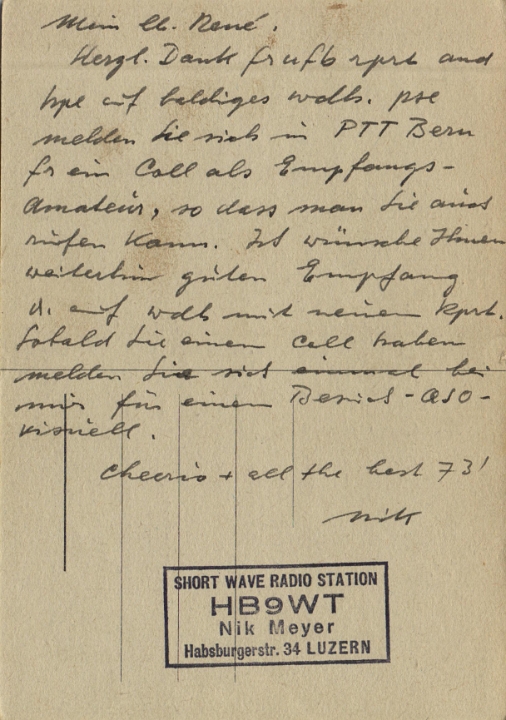 Mein lb. René.
Herzl. Dank fr ufb rprt and
hpe auf baldiges wdh. pse
melden Sie sich in PTT Bern
fr ein Call als Empfangs-
Amateur, so dass man Sie auch
rufen kann. Ich wünsche Ihnen
weiterhin guten Empfang
u. auf wdh mit neuem Rprt.
Sobald Sie einen call haben
melden Sie sich einmal bei
mir für einen Besuch - QSO -
visuell.
Cheerio + all the best 73!
Nik
SHORT WAVE RADIO STATION
HB9WT
Nik Meyer
Habsburgerstr. 34 LUZERN